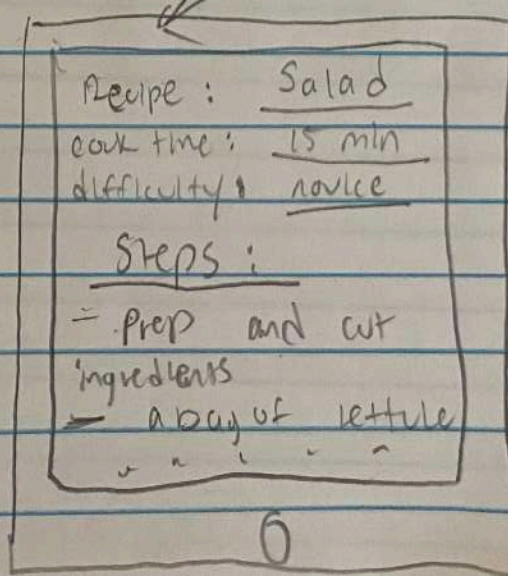 Recipe: Salad
cook time: 15 min
difficulty: novice
Steps:
- prep and cut
ingredients
- a bag of lettuce